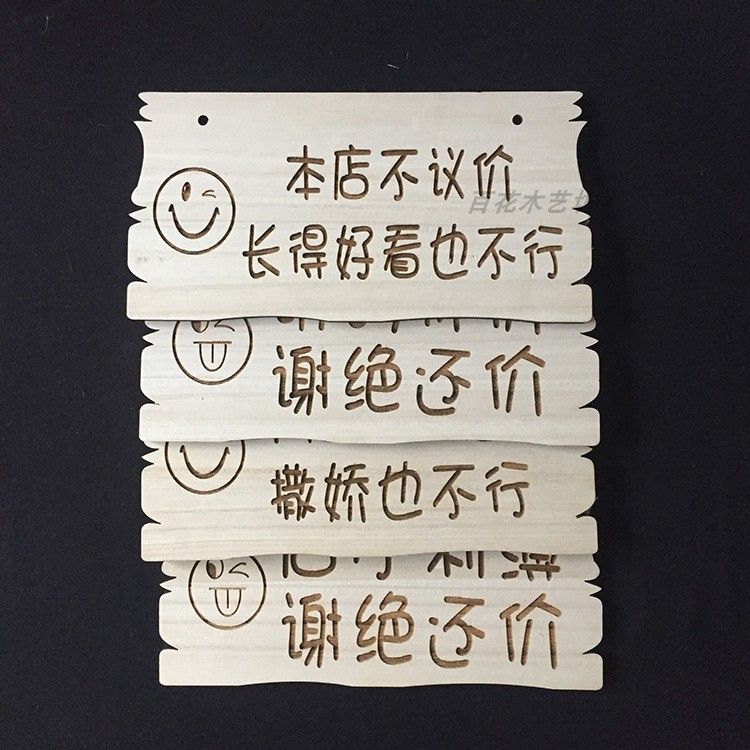 本店不议价
百花木艺坊
长得好看也不行
谢绝还价
撒娇也不行
谢绝还价